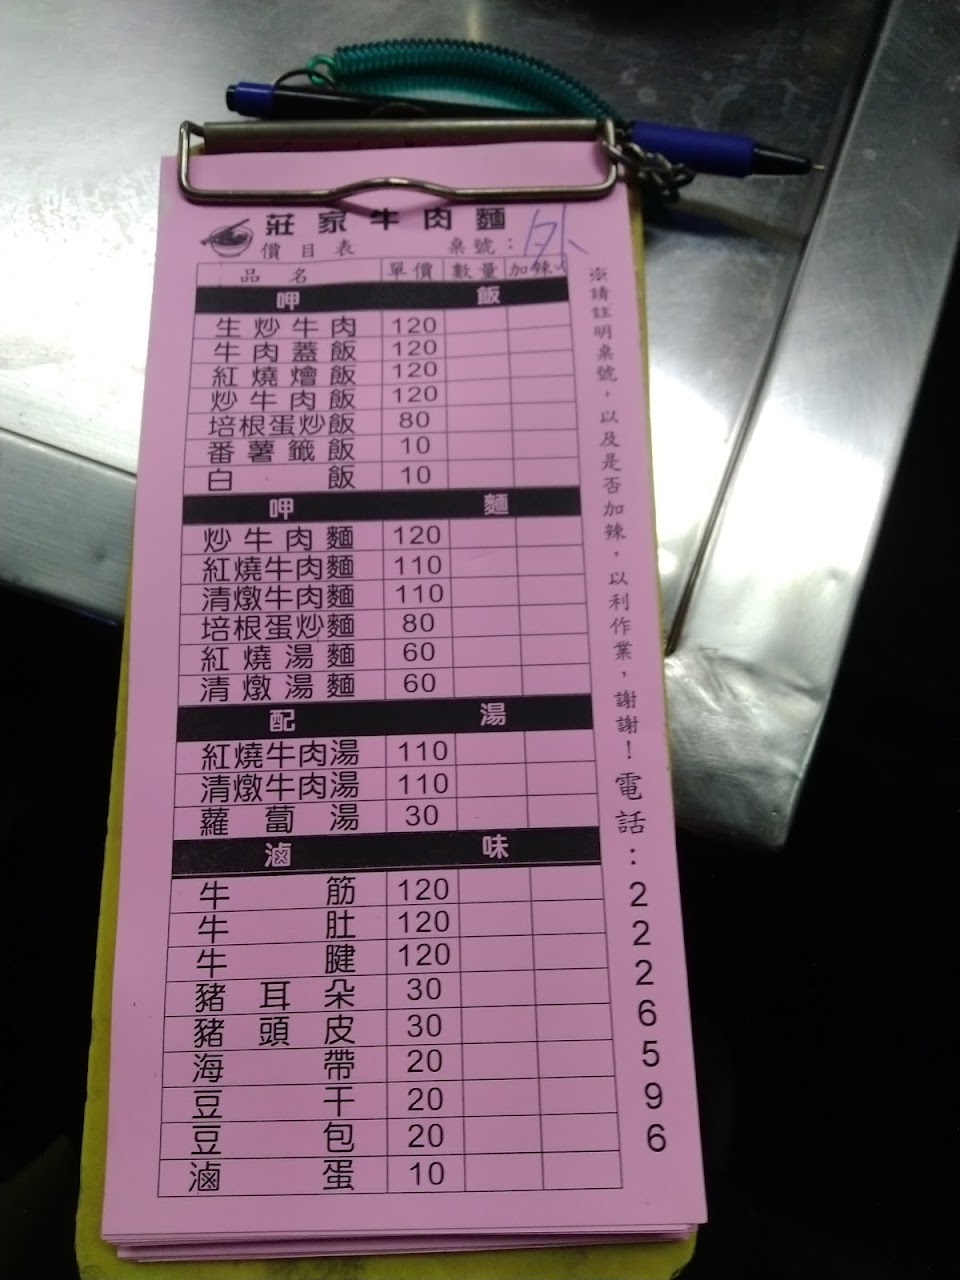 莊家牛肉麵
價目表 桌號：外
品名 單價 數量 加辣
呷飯
生炒牛肉 120
牛肉蓋飯 120
紅燒燴飯 120
炒牛肉飯 120
培根蛋炒飯 80
番薯籤飯 10
白飯 10
呷麵
炒牛肉麵 120
紅燒牛肉麵 110
清燉牛肉麵 110
培根蛋炒麵 80
紅燒湯麵 60
清燉湯麵 60
配湯
紅燒牛肉湯 110
清燉牛肉湯 110
蘿蔔湯 30
滷味
牛筋 120
牛肚 120
牛腱 120
豬耳朵 30
豬頭皮 30
海帶 20
豆干 20
豆包 20
滷蛋 10
※請註明桌號，以及是否加辣，以利作業，謝謝！電話：2226596